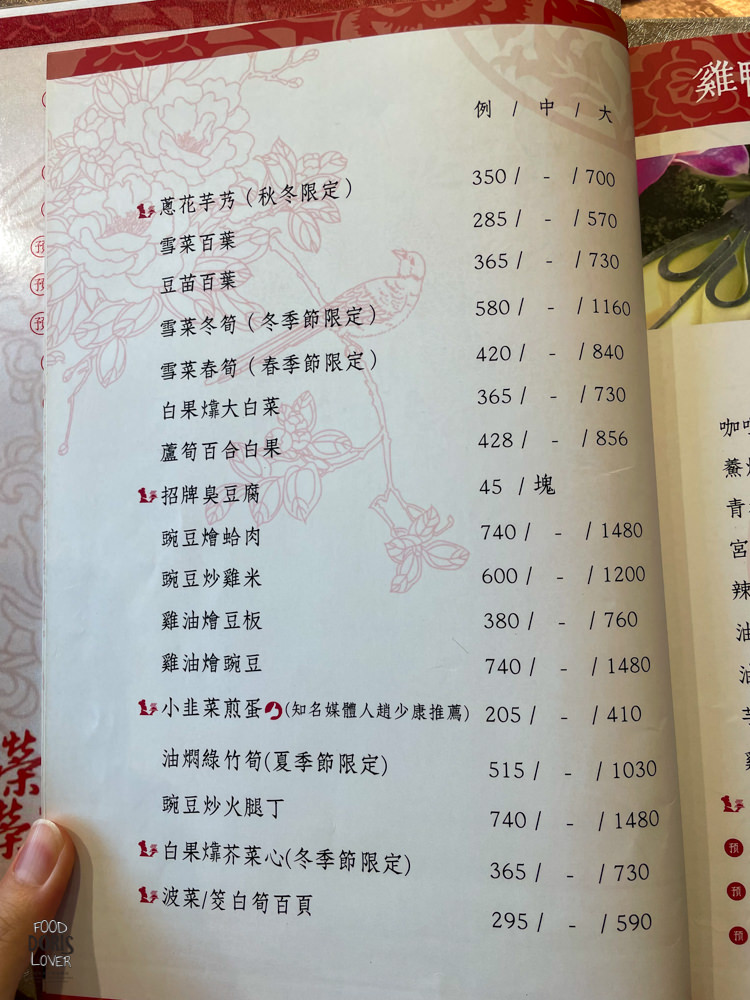 雞
例 / 中 / 大
蔥花芋艿(秋冬限定) 350 / - / 700
雪菜百葉 285 / - / 570
豆苗百葉 365 / - / 730
雪菜冬筍(冬季節限定) 580 / - / 1160
雪菜春筍(春季節限定) 420 / - / 840
白果㸆大白菜 365 / - / 730
蘆筍百合白果 428 / - / 856
招牌臭豆腐 45 / 塊
豌豆燴蛤肉 740 / - / 1480
豌豆炒雞米 600 / - / 1200
雞油燴豆板 380 / - / 760
雞油燴豌豆 740 / - / 1480
小韭菜煎蛋(知名媒體人趙少康推薦) 205 / - / 410
油燜綠竹筍(夏季節限定) 515 / - / 1030
豌豆炒火腿丁 740 / - / 1480
白果㸆芥菜心(冬季節限定) 365 / - / 730
波菜/筊白筍百頁 295 / - / 590
榮
榮
咖
青
宮
辣
油
油
預
預
預
FOOD
DORIS
LOVER